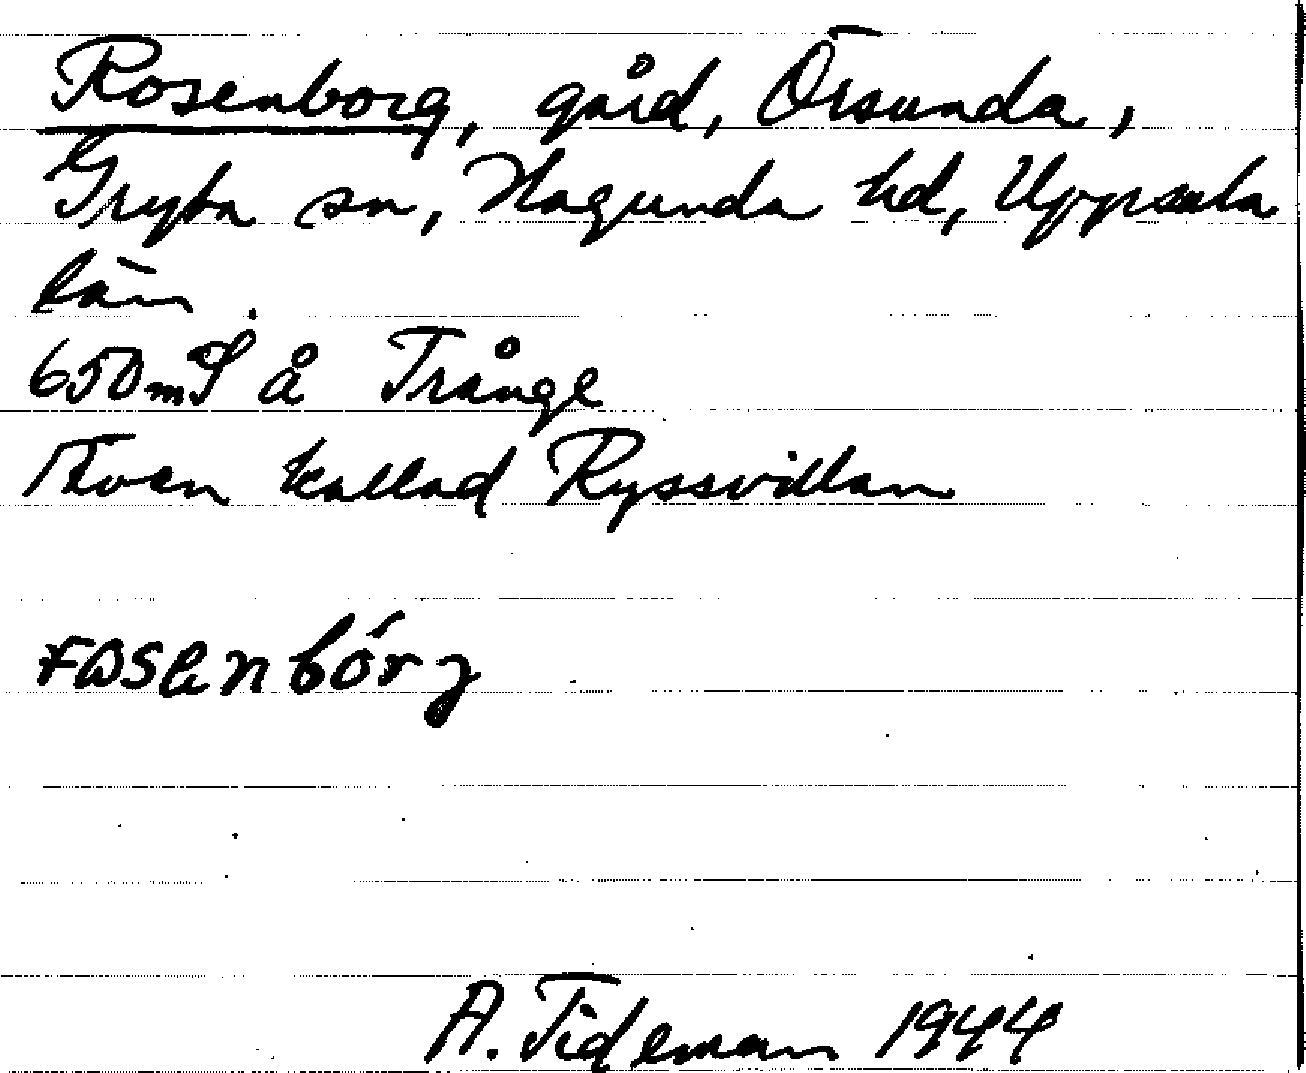 Rosenborg, gård, Örsunda,
Gryta sn, Hagunda hd, Uppsala
län.
650 m S å Trånge
Även kallad Ryssvillan
rosenbórg
A. Tideman 1944